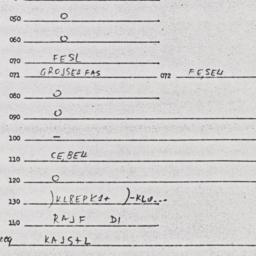 050 O
060 O
070 FESL
071 GROJSERFAS 072 FE,SEL
080 O
090 O
100 –
110 CE,BEL
120 O
130
140 RAJF DI
KAJS+L